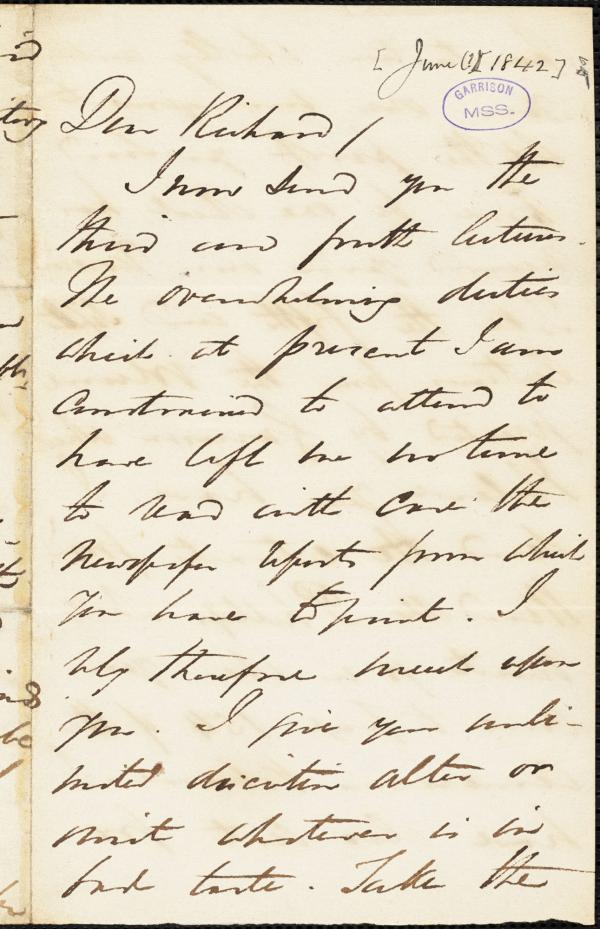 [June (?) 1842]
GARRISON
MSS.
Dear Richard,
I now send you the
third and fourth lectures.
The overwhelming duties
which at present I am
constrained to attend to
have left me no time
to read with care the
newspaper reports from which
you have to print. I
rely therefore much upon
you. I give you unli-
mited discretion alter or
omit whatever is in
bad taste. Take the